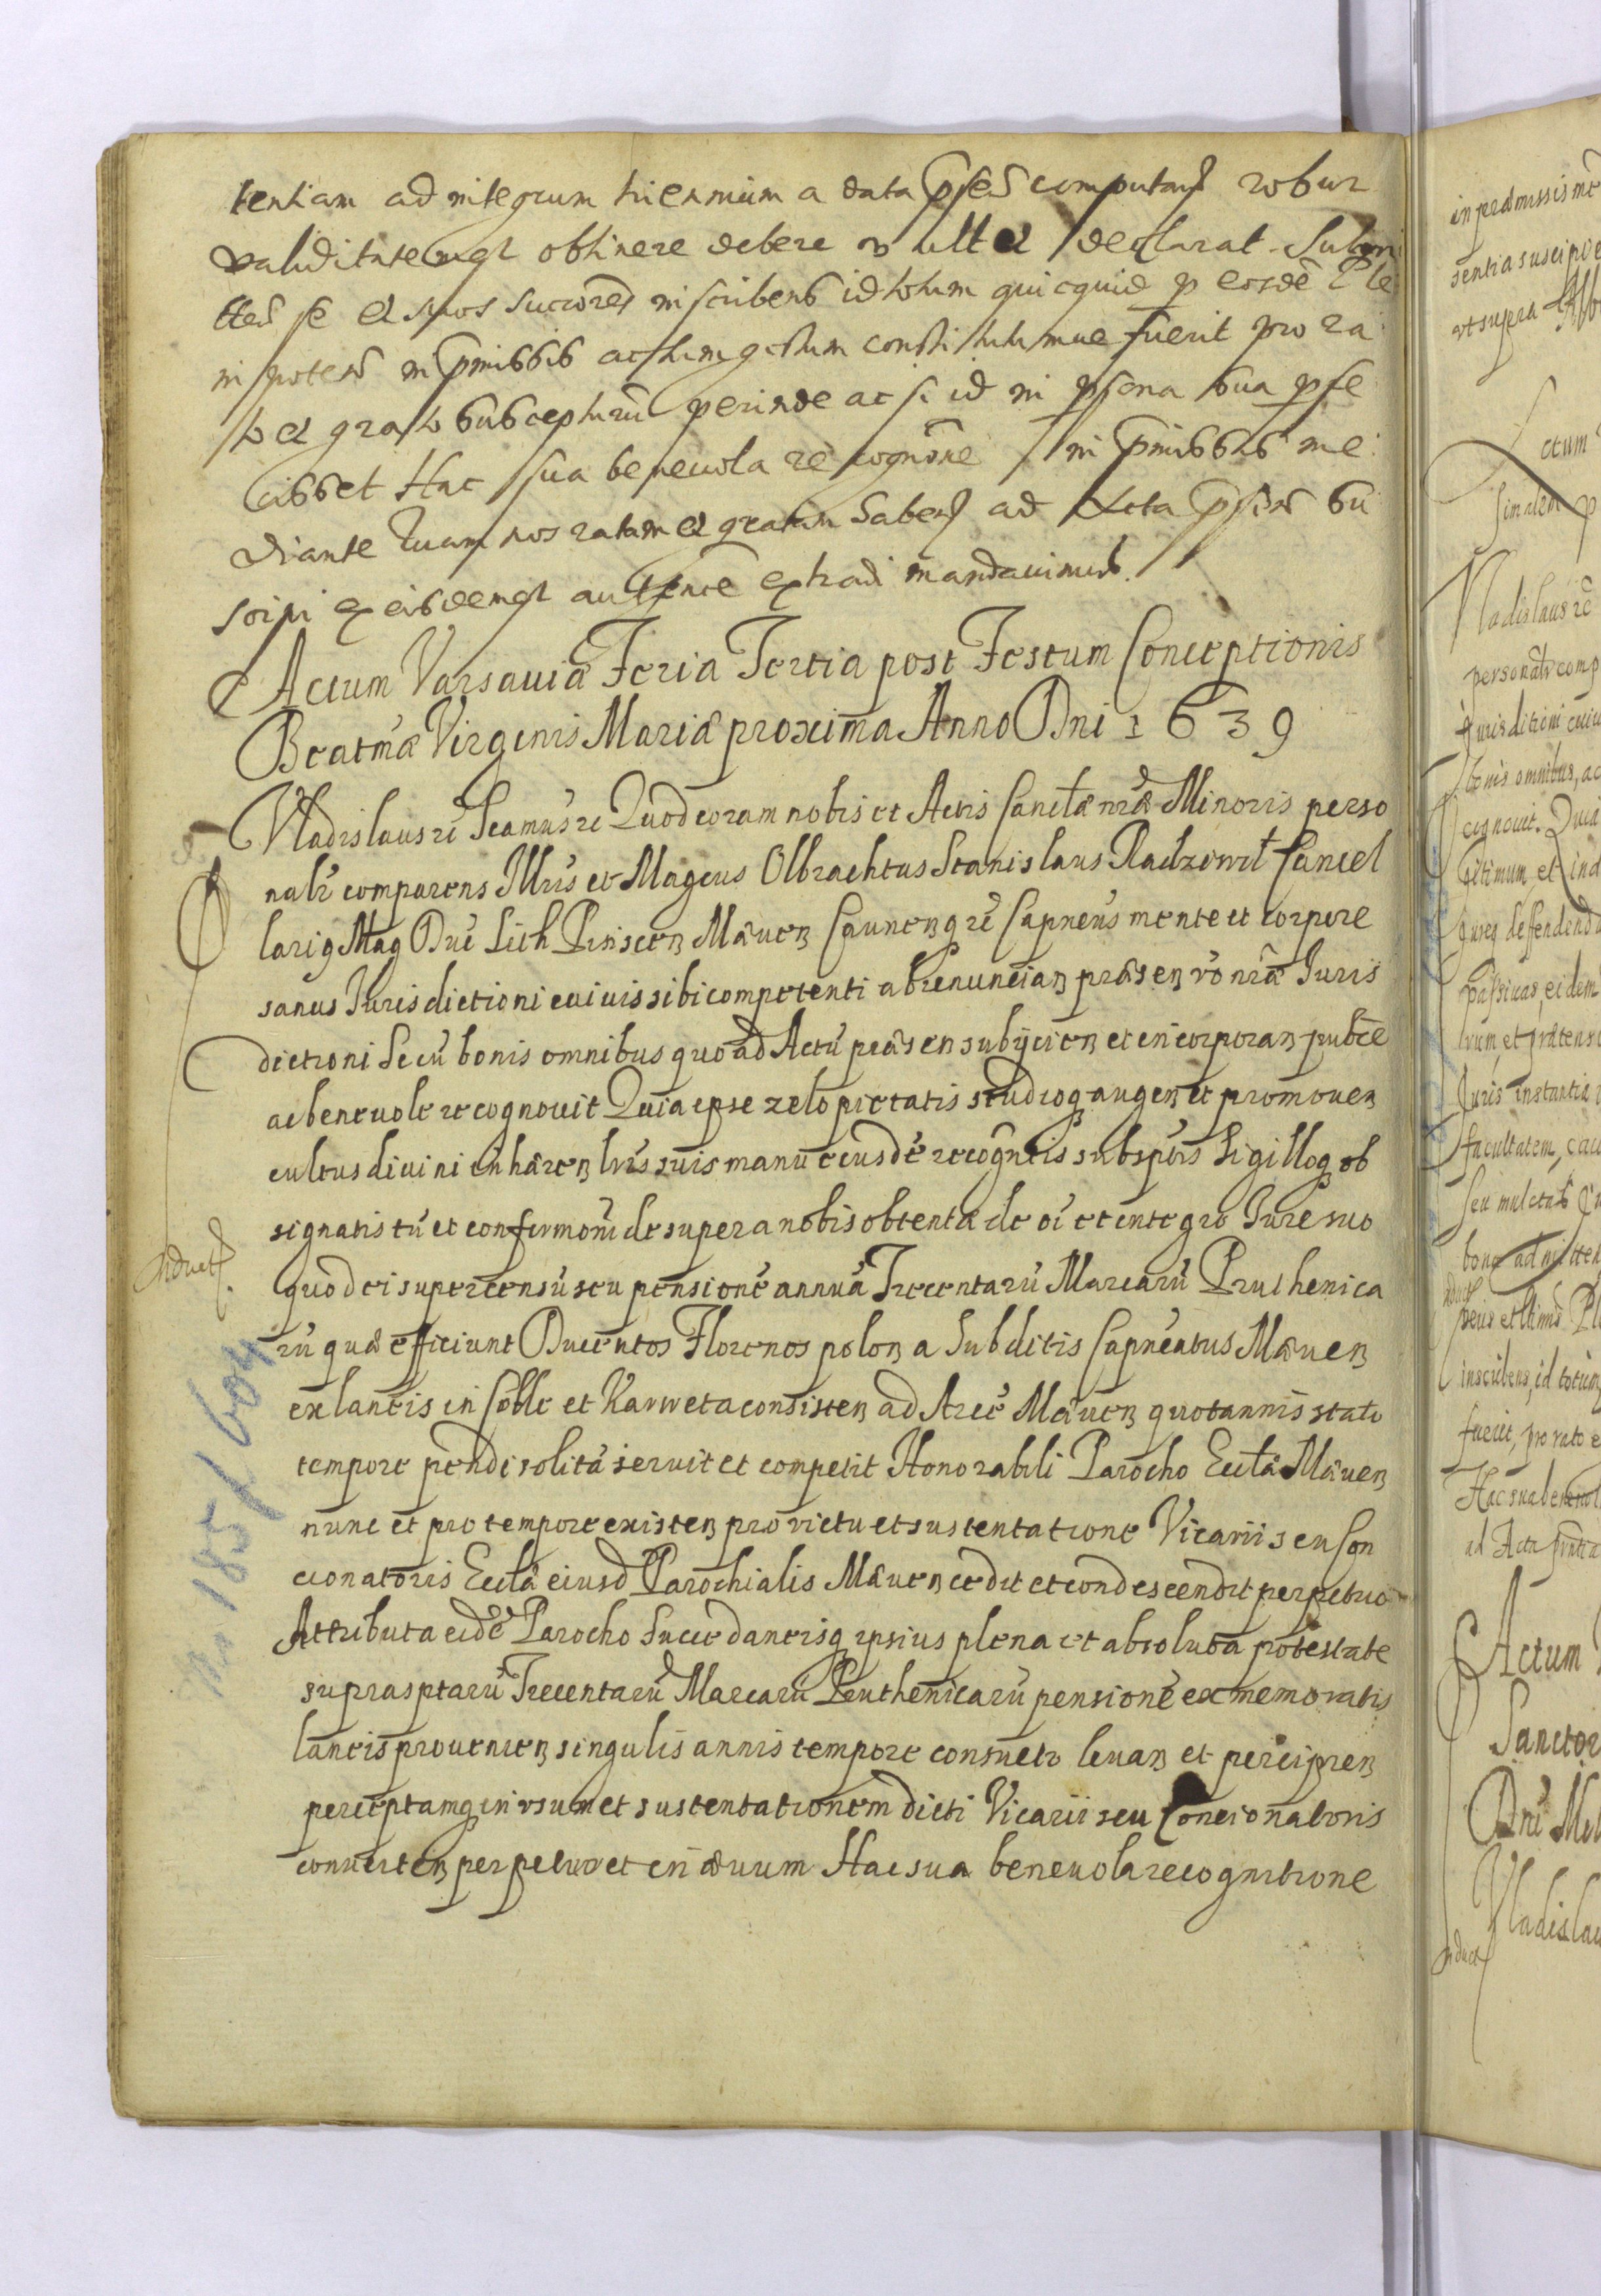 tentiam ad integrum triennium a data pñsē computanđ robur
validitatemq obtinere debere vult et declarat Submi
tteñ se et suos succoreš inscribens id totum quicquid p eosdē Ple
nipoteñ in pmissis actum gestum constitutumue fuerit pro ra
to et grato suscepturū perinde ac si id in psona sua pfe
cisset Hac sua beneuola recognoñe in pmissis me
diante Quam nos ratam et gratam habenđ ad Acta pñtia su
scipi ex eisdemq autence extradi mandauimus.
Actum Varsauiæ Feria Tertia post Festum Conceptionis
Beatmæ Virginis Mariæ proxima Anno Dni 1639
Vladislaus rē Scamus rē Quod coram nobis et Actis Cancellæ nræ Minoris perso
nalr comparens Illris et Mageus Olbrachtus Stanislaus Radziwił Cancel
larig Mag Duc Lith Pinscen Mæuen Caunenq rē Capneus mente et corpore
sanus Jurisdictioni cuiuis sibi competenti abrenuncian præsen vo nræ Juris
dictioni se cū bonis omnibus quo ad Actū præsen subijcien et incorporan pubce
ac beneuole recognouit Quia ipse zelo pietatis studioq augen et promouen
cultus diuini inhæren lris suis manu eiusdē recognitis subsptis Sigilloq ob
signatis tū et confirmoni desuper a nobis obtentæ de oi et integro Jure suo
quod ei super censū seu pensionē annuā Trecentarū Marcarū Pruthenica
rū quæ efficiunt Ducentos Florenos polon a Subditis Capneatus Mæuen
ex laneis in Solle et Karweta consisten ad Arcē Mæuen quotannis stato
tempore pendi solitā seruit et competit Honorabili Parocho Ecclæ Mæuen
nunc et pro tempore existen pro victu et sustentatione Vicarii seu Con
cionatoris Ecclæ eiusd Parochialis Mæuen cedit et condescendit perpetuo
Attributa eidē Parocho Succedaneisq ipsius plena et absoluta potestate
suprasptarū Trecentarū Marcarū Pruthenicarū pensionē ex memoratis
laneis prouenien singulis annis tempore consueto leuan et percipien
perceptamq in vsum et sustentationem dicti Vicarii seu Concionatoris
conuerten perpetuo et in æuum Hac sua beneuola recognitione
Induct
185/604
in præmissis me
sentia suscipi e
vt supra
ctum
Vladislaus rē
personalr comp
Jurisdictioni cuiu
bonis omnibus, ac
cognouit. Quia
gitimum et ind
Jureq deffendend
passiuas, eidem
Juris instantia
facultatem, cau
seu mulctas
bona admitten
inscribens, id totum
fuerit, pro rato e
Hac sua beneuol
ad Acta pñtia
Actum
Sanctor
Dni
Vladislau
Induct